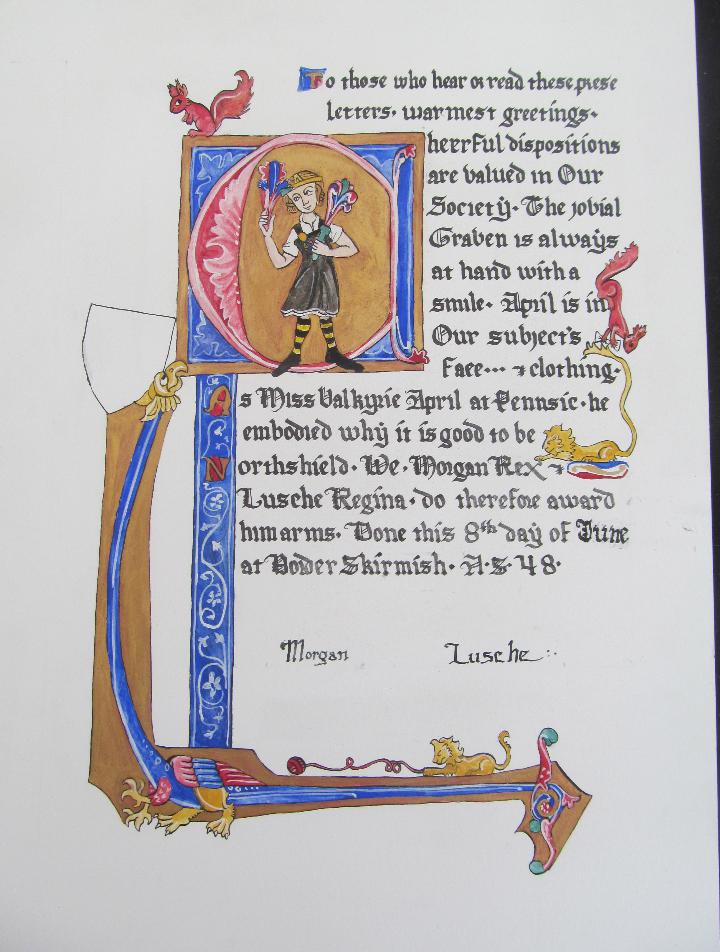 To those who hear or read these prese
letters. warmest greetings.
Cheerful dispositions
are valued in Our
Society. The jovial
Graben is always
at hand with a
smile. April is in
Our subject's
face... & clothing.
As Miss Valkyrie April at Pennsic. he
embodied why it is good to be
Northshield. We. Morgan Rex &
Lusche Regina. do therefore award
him arms. Done this 8th day of June
at Border Skirmish. A.S. 48.
Morgan Lusche